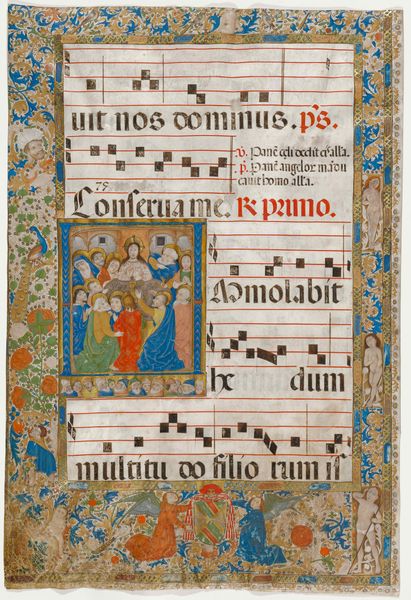 uit nos dominus. ps.
v. Panē celi dedit eis alla.
p. Panē angelor m̄adu
cauit homo alla.
75
Conserua me. R primo.
Immolabit
he dum
multitu do filio rum is